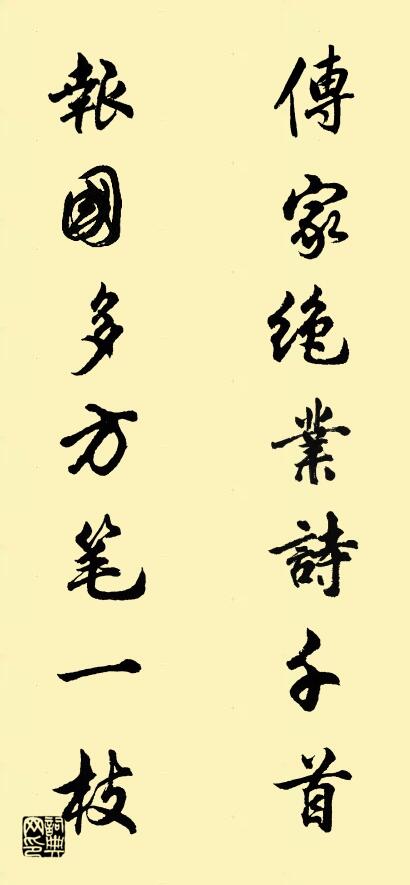 傳家絶業詩千首
報國多方笔一枝
詞典网印